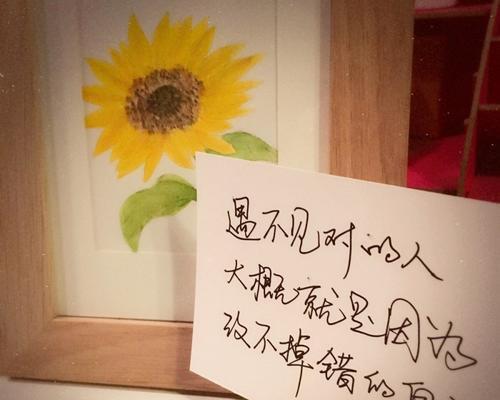 遇不见对的人
大概就是因为
改不掉错的自